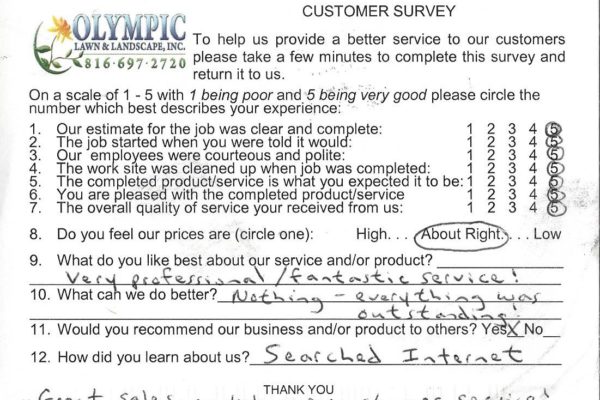 OLYMPIC
LAWN & LANDSCAPE, INC.
816·697·2720
CUSTOMER SURVEY
To help us provide a better service to our customers
please take a few minutes to complete this survey and
return it to us.
On a scale of 1 - 5 with 1 being poor and 5 being very good please circle the
number which best describes your experience:
1. Our estimate for the job was clear and complete: 1 2 3 4 5
2. The job started when you were told it would: 1 2 3 4 5
3. Our employees were courteous and polite: 1 2 3 4 5
4. The work site was cleaned up when job was completed: 1 2 3 4 5
5. The completed product/service is what you expected it to be: 1 2 3 4 5
6. You are pleased with the completed product/service 1 2 3 4 5
7. The overall quality of service your received from us: 1 2 3 4 5
8. Do you feel our prices are (circle one): High. . . About Right. . . Low
9. What do you like best about our service and/or product?
Very professional/fantastic service!
10. What can we do better? Nothing - everything was
outstanding!
11. Would you recommend our business and/or product to others? Yes X No
12. How did you learn about us? Searched Internet
THANK YOU
Great sales